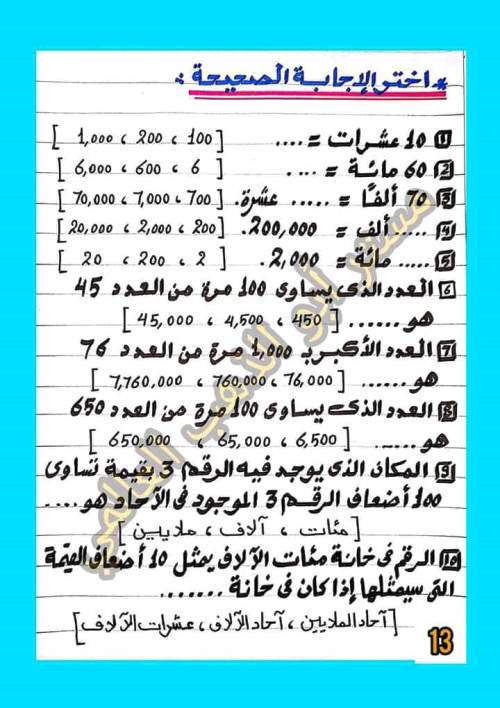 * اختر الإجابة الصحيحة :
1 10 عشرات = .... [ 100 ، 200 ، 1,000 ]
2 60 مائة = .... [ 6 ، 600 ، 6,000 ]
3 70 ألفًا = ..... عشرة. [ 700 ، 7,000 ، 70,000 ]
4 ..... ألف = 200,000. [ 200 ، 2,000 ، 20,000 ]
5 ..... مائة = 2,000. [ 2 ، 200 ، 20 ]
6 العدد الذى يساوى 100 مرة من العدد 45
هو ...... [ 450 ، 4,500 ، 45,000 ]
7 العدد الأكبر بـ 1,000 مرة من العدد 76
هو ...... [ 76,000 ، 760,000 ، 7,760,000 ]
8 العدد الذى يساوى 100 مرة من العدد 650
هو ..... [ 6,500 ، 65,000 ، 650,000 ]
9 المكان الذى يوجد فيه الرقم 3 بقيمة تساوى
100 أضعاف الرقم 3 الموجود فى الآحاد هو ....
[ مئات ، آلاف ، ملايين ]
10 الرقم فى خانة مئات الآلاف يمثل 10 أضعاف القيمة
التى سيمثلها إذا كان فى خانة .......
[ آحاد الملايين ، آحاد الآلاف ، عشرات الآلاف ]
13
مستر أبو الدهب التعليمي